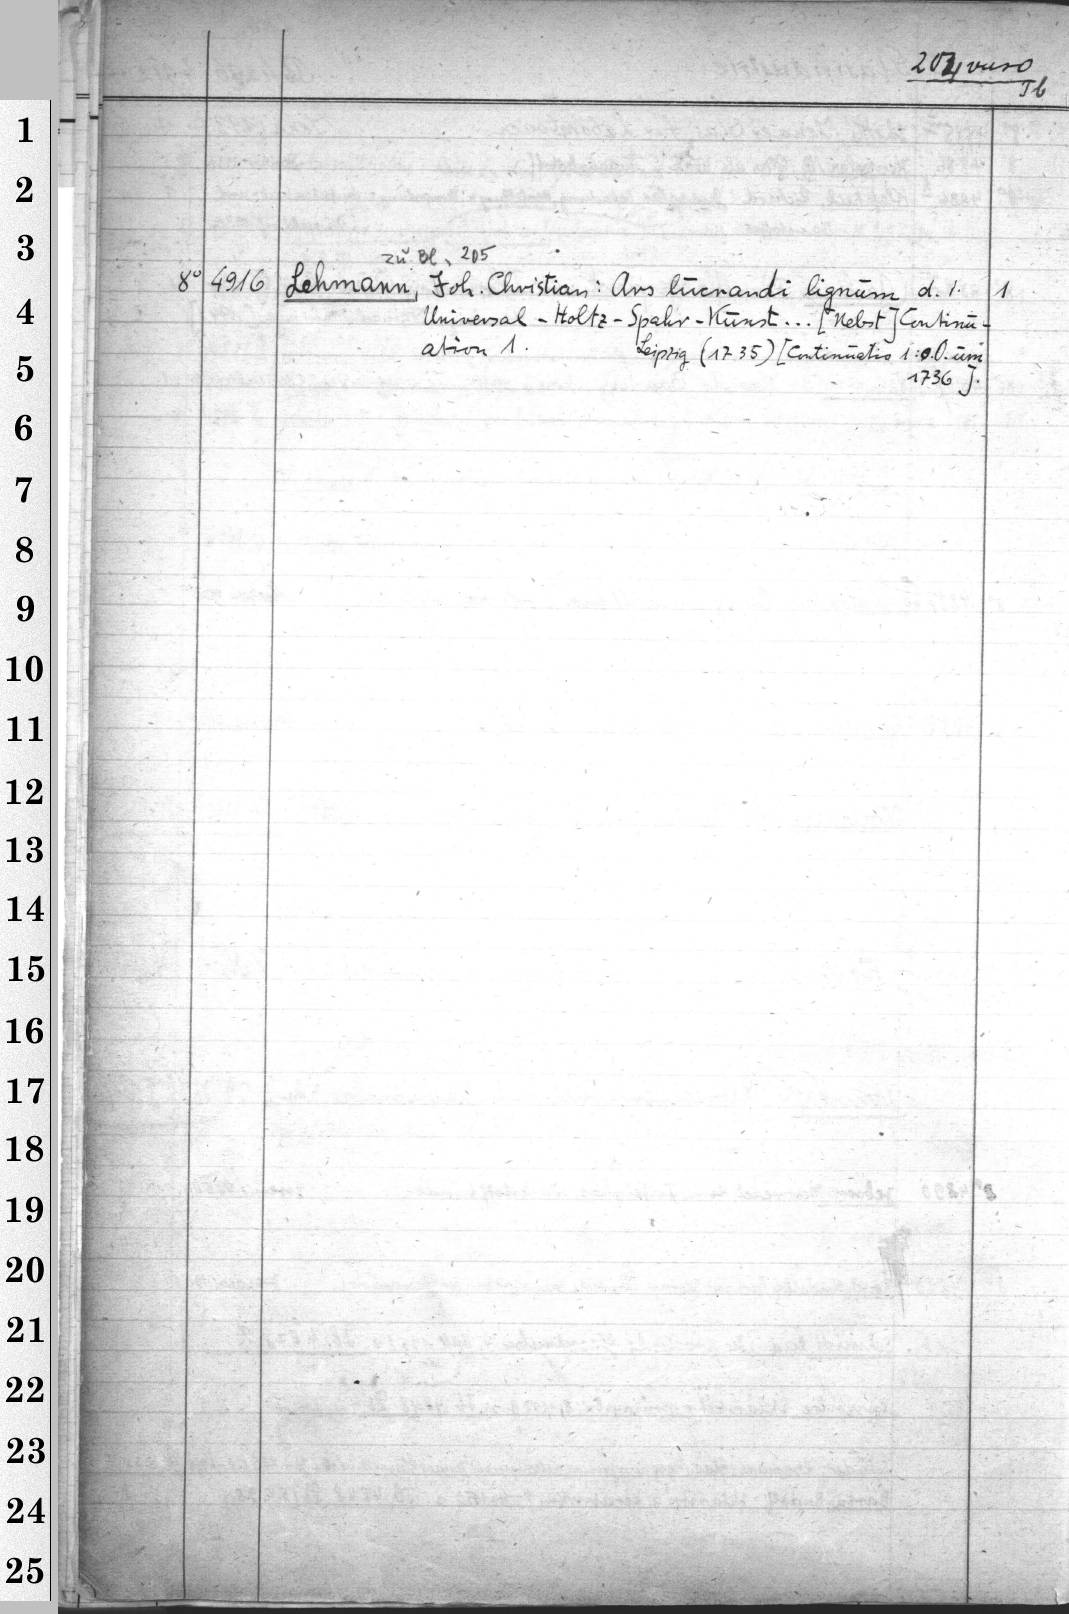 204 verso
Tb
zu Bl. 205
8° 4916 Lehmann, Joh. Christian: Ars lucrandi lignum d. i. 1
Universal-Holtz-Spahr-Kunst... [Nebst] Continu-
ation 1. Leipzig (1735) [Continuatio 1: o.O. um
1736].
1
2
3
4
5
6
7
8
9
10
11
12
13
14
15
16
17
18
19
20
21
22
23
24
25